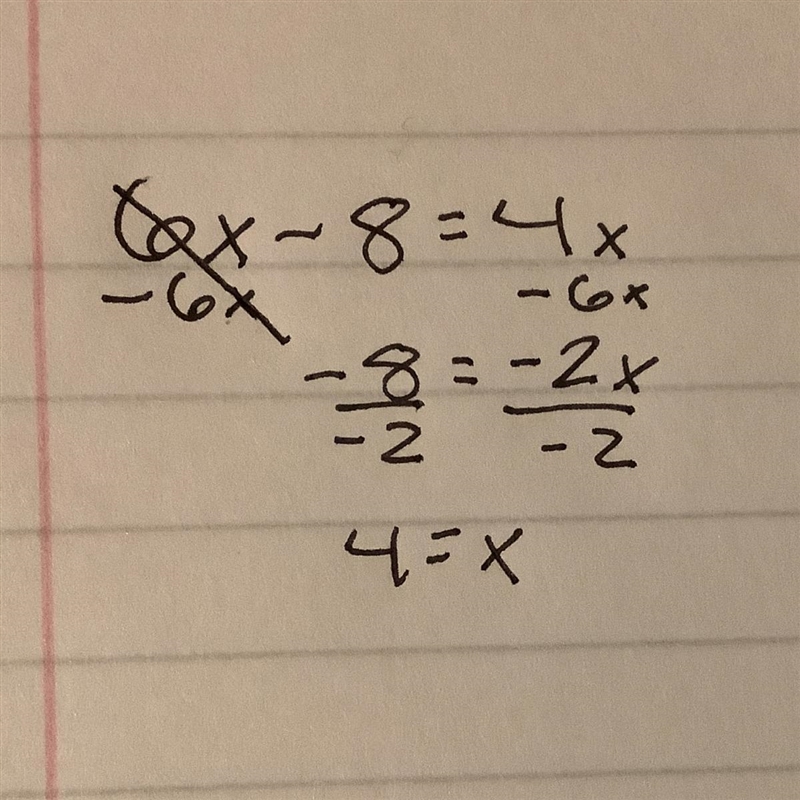 6x - 8 = 4x
- 6x - 6x
- 8 = - 2x
- 2 - 2
4 = x